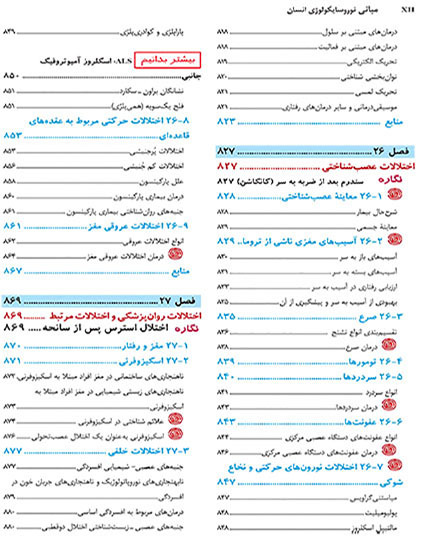 XII مبانی نوروسایکولوژی انسان
درمان‌های مبتنی بر سلول ۸۱۸
درمان‌های مبتنی بر فعالیت ۸۱۸
تحریک الکتریکی ۸۱۹
توان‌بخشی شناختی ۸۲۰
تحریک لمسی ۸۲۱
موسیقی‌درمانی و سایر درمان‌های رفتاری ۸۲۱
منابع ۸۲۳
فصل ۲۶ ۸۲۷
اختلالات عصب‌شناختی ۸۲۷
نگاره سندرم بعد از ضربه به سر (کانکاشن) ۸۲۷
۲۶-۱ معاینهٔ عصب‌شناختی ۸۲۸
شرح‌حال بیمار ۸۲۸
معاینهٔ جسمی ۸۲۹
۲۶-۲ آسیب‌های مغزی ناشی از تروما ۸۲۹
آسیب‌های باز به سر ۸۳۰
آسیب‌های بسته به سر ۸۳۱
ارزیابی رفتاری در آسیب به سر ۸۳۳
بهبودی از آسیب به سر و پیشگیری از آن ۸۳۵
۲۶-۳ صرع ۸۳۵
تقسیم‌بندی انواع تشنج ۸۳۶
درمان صرع ۸۳۸
۲۶-۴ تومورها ۸۳۹
۲۶-۵ سردردها ۸۴۰
انواع سردرد ۸۴۱
درمان سردردها ۸۴۳
۲۶-۶ عفونت‌ها ۸۴۳
انواع عفونت‌های دستگاه عصبی مرکزی ۸۴۴
درمان عفونت‌های دستگاه عصبی مرکزی ۸۴۶
۲۶-۷ اختلالات نورون‌های حرکتی و نخاع
شوکی ۸۴۷
میاستنی‌گراویس ۸۴۷
پولیومیلیت ۸۴۸
مالتیپل اسکلروز ۸۴۸
پاراپلژی و کوادری‌پلژی ۸۴۹
بیشتر بدانیم ALS، اسکلروز آمیوتروفیک
جانبی ۸۵۰
نشانگان براون ـ سکارد ۸۵۱
فلج یک‌سویه (همی‌پلژی) ۸۵۱
۲۶-۸ اختلالات حرکتی مربوط به عقده‌های
قاعده‌ای ۸۵۳
اختلالات پُرجنبشی ۸۵۳
اختلالات کم جُنبشی ۸۵۶
علل پارکینسون ۸۵۸
درمان بیماری پارکینسون ۸۶۰
جنبه‌های روان‌شناختی بیماری پارکینسون ۸۶۱
۲۶-۹ اختلالات عروقی مغز ۸۶۱
انواع اختلالات عروقی ۸۶۲
درمان اختلالات عروقی مغز ۸۶۴
منابع ۸۶۷
فصل ۲۷ ۸۶۹
اختلالات روان‌پزشکی و اختلالات مرتبط ۸۶۹
نگاره اختلال استرس پس از سانحه ۸۶۹
۲۷-۱ مغز و رفتار ۸۷۰
۲۷-۲ اسکیزوفرنی ۸۷۱
ناهنجاری‌های ساختمانی در مغز افراد مبتلا به اسکیزوفرنی ۸۷۲
ناهنجاری‌های زیستی شیمیایی در مغز افراد مبتلا به
اسکیزوفرنی ۸۷۳
علائم شناختی در اسکیزوفرنی ۸۷۴
اسکیزوفرنی به‌عنوان یک اختلال عصب‌تحولی ۸۷۶
۲۷-۳ اختلالات خلقی ۸۷۷
جنبه‌های عصبی - شیمیایی افسردگی ۸۷۷
نابهنجاری‌های نوروپاتولوژیک و ناهنجاری‌های جریان خون در
افسردگی ۸۷۹
درمان‌های مربوط به افسردگی اساسی ۸۸۰
جنبه‌های عصبی - زیست‌شناختی اختلال دوقطبی ۸۸۰